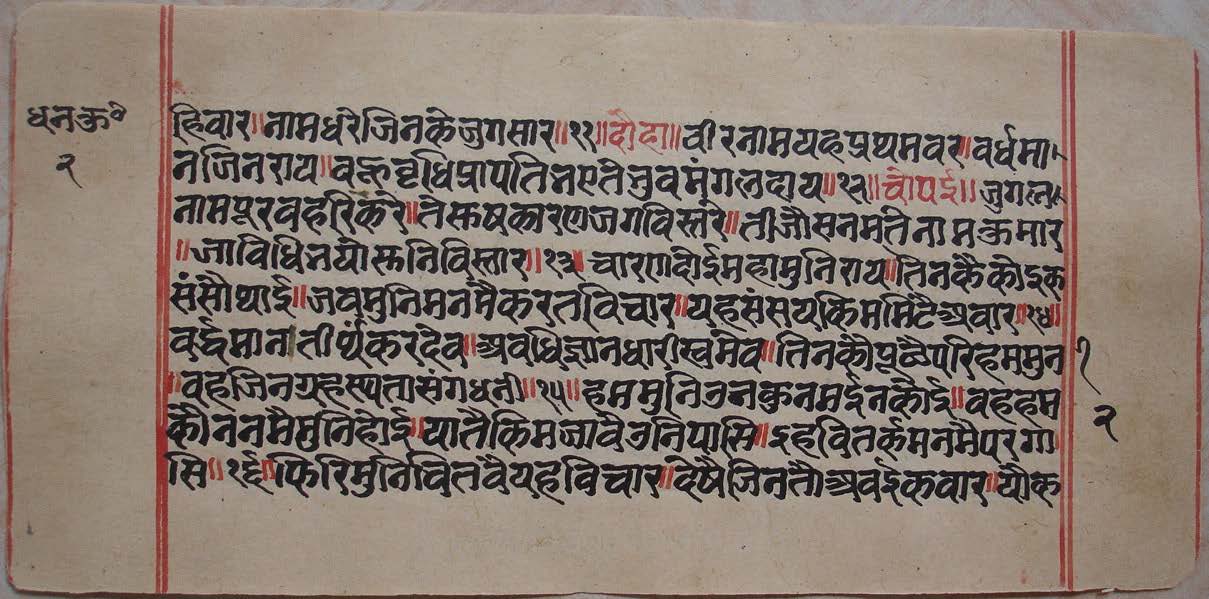 धनकु॰
२
हिवार॥नामधरेजिनकेजुगसार॥११॥दोहा॥वीरनामयहप्रथमवर॥वर्धमा
नजिनराय॥वहुवृधिप्रापतिनएतेतुवमंगलदाय॥१२॥चौपई॥जुगल
नामपूरवहरिकरै॥तेसुषकारणजगविस्तरै॥तीजौसनमतनामकुमार
॥जाविधिनयौसुनिविस्तार॥१३॥चारणदोईमहामुनिराय॥तिनकैकोइक
संसौथाई॥जवमुनिमनमैकरतविचार॥यहसंसयकिममिटैअवार॥१४॥
वर्द्धमानतीर्थंकरदेव॥अवधिज्ञानधारीस्वमेव॥तिनकौपूछैपरिहममुन
॥वहजिनग्रहस्यतासंगधनी॥१५॥हममुनिउनकुनमईनकोई॥वहहम
कौननमैसुनिहोई॥यातैकिमजावैउनिपासि॥इहवितर्कमनमैपरगा
सि॥१६॥फिरिमुनिवितवैयहविचार॥देषैजिनतौअवईकवार॥यौक
२